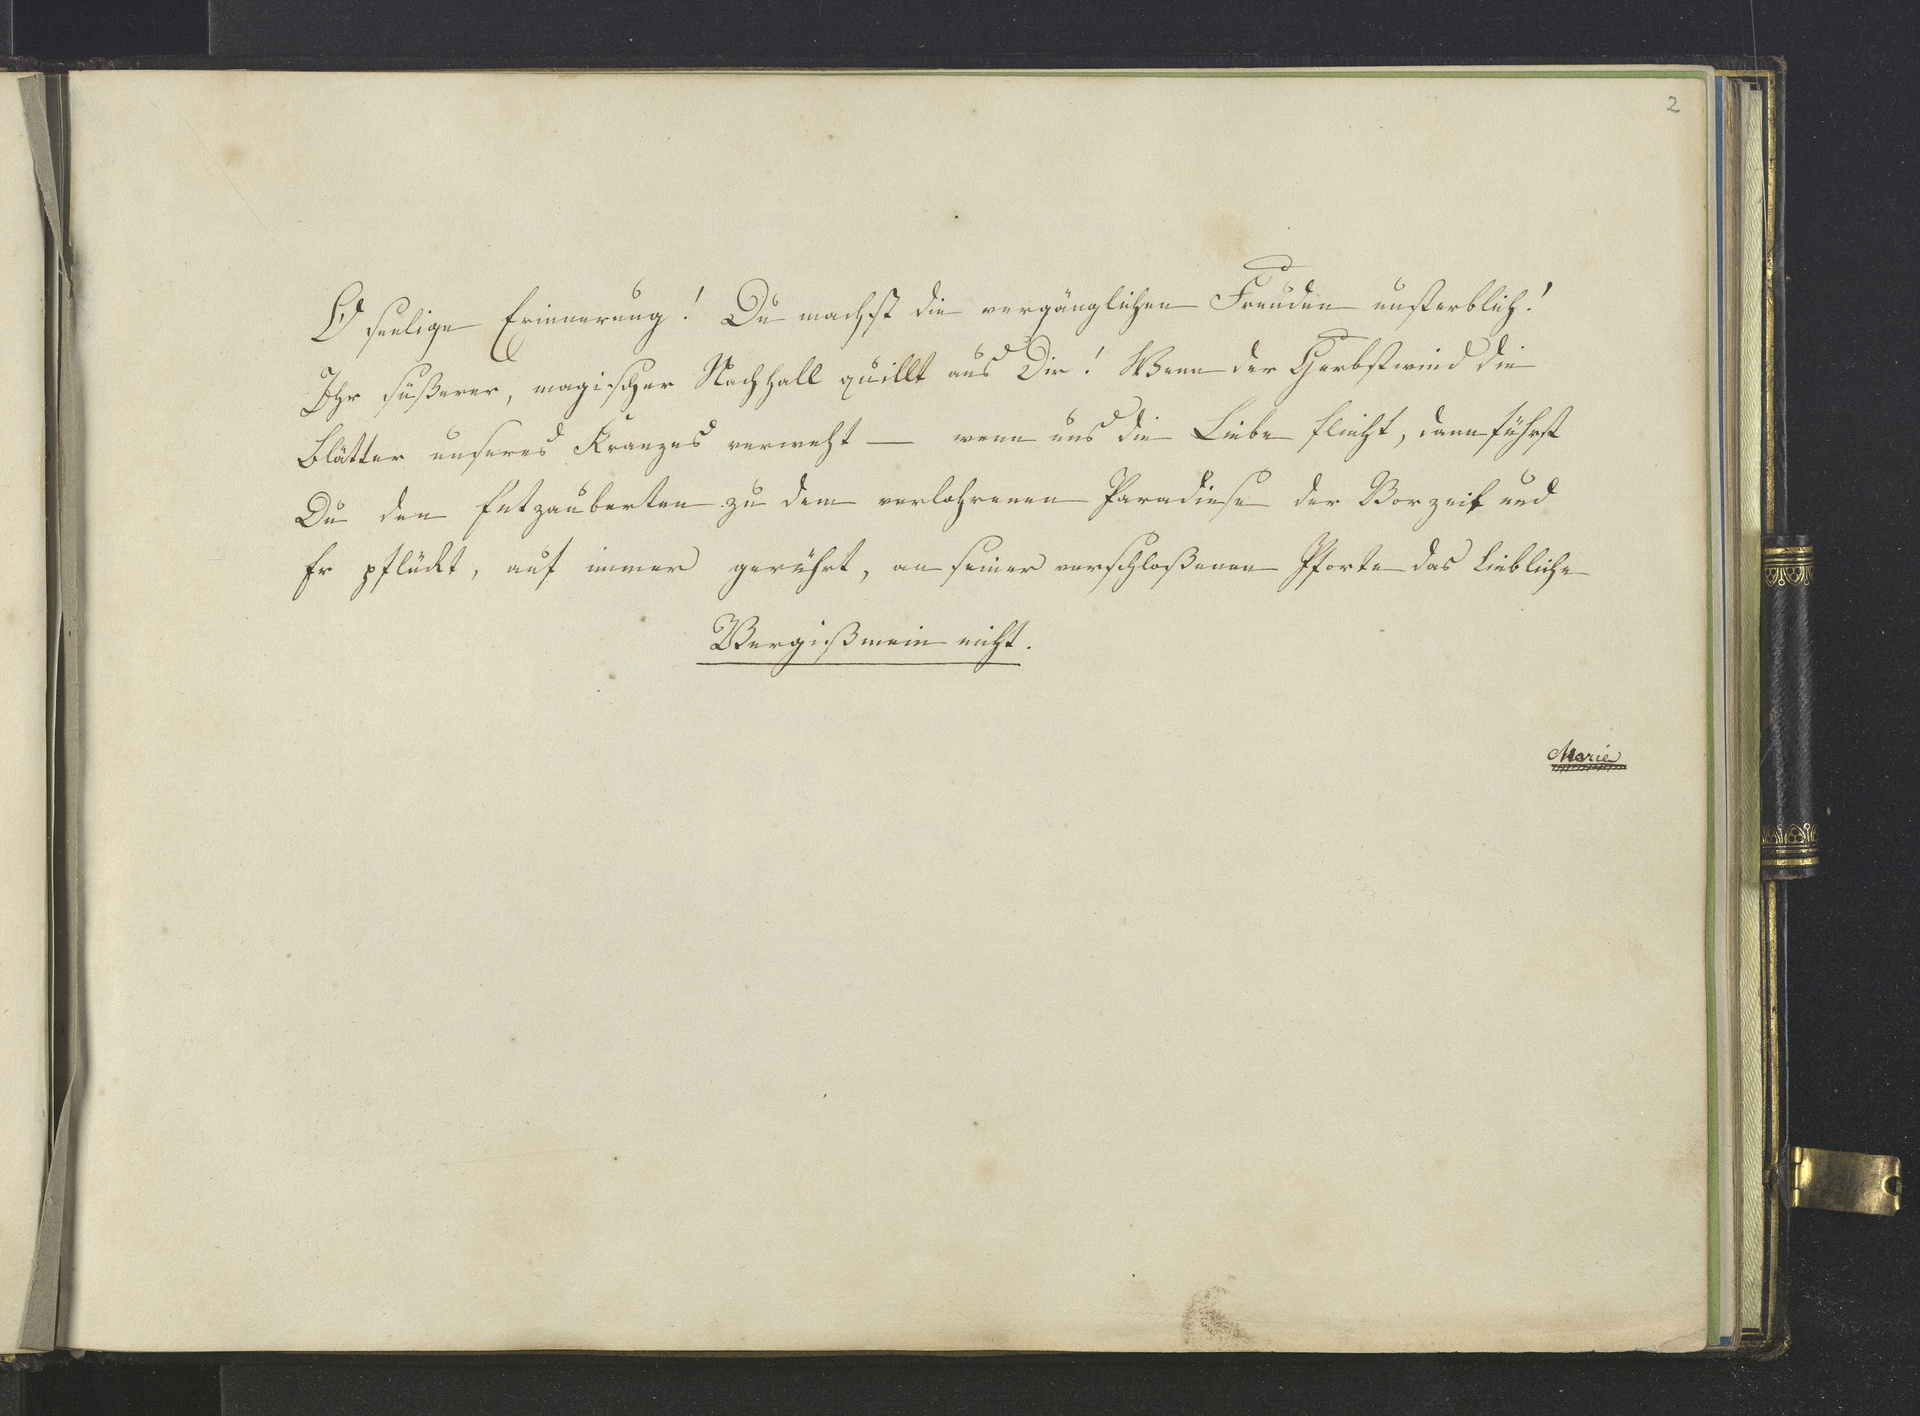 2
O seelige Erinnerung! Du machst die vergänglichen Freuden unsterblich!
Ihr süßerer, magischer Nachhall quillt aus Dir! Wenn der Herbstwind die
Blätter unseres Kranzes verweht — wenn uns die Liebe flieht, dann führst
Du den Entzauberten zu dem verlohrenen Paradiese der Vorzeit und
Er pflückt, auf immer gerührt, an seiner verschloßenen Pforte das liebliche
Vergißmein nicht.
Marie